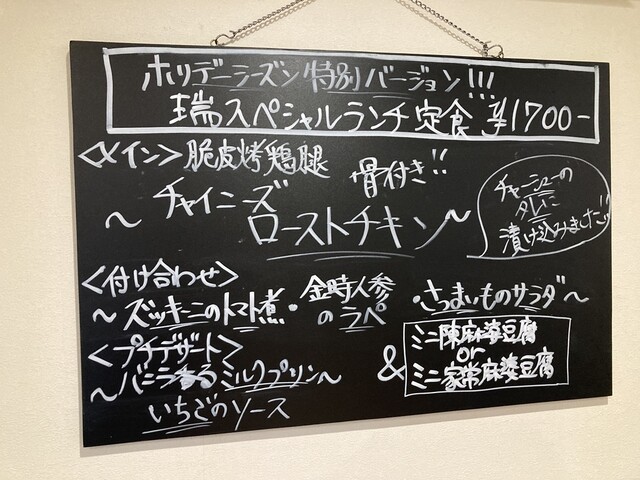 ホリデーシーズン特別バージョン!!!
瑞スペシャルランチ定食 ¥1700-
<メイン> 脆皮烤鶏腿
〜チャイニーズ 骨付き!!
ローストチキン〜
チャーシューの
タレに
漬け込みました!!
<付け合わせ>
〜ズッキーニのトマト煮・金時人参のラペ
・さつまいものサラダ〜
<プチデザート>
〜バニラ香るミルクプリン〜
いちごのソース
& ミニ陳麻婆豆腐
or
ミニ家常麻婆豆腐